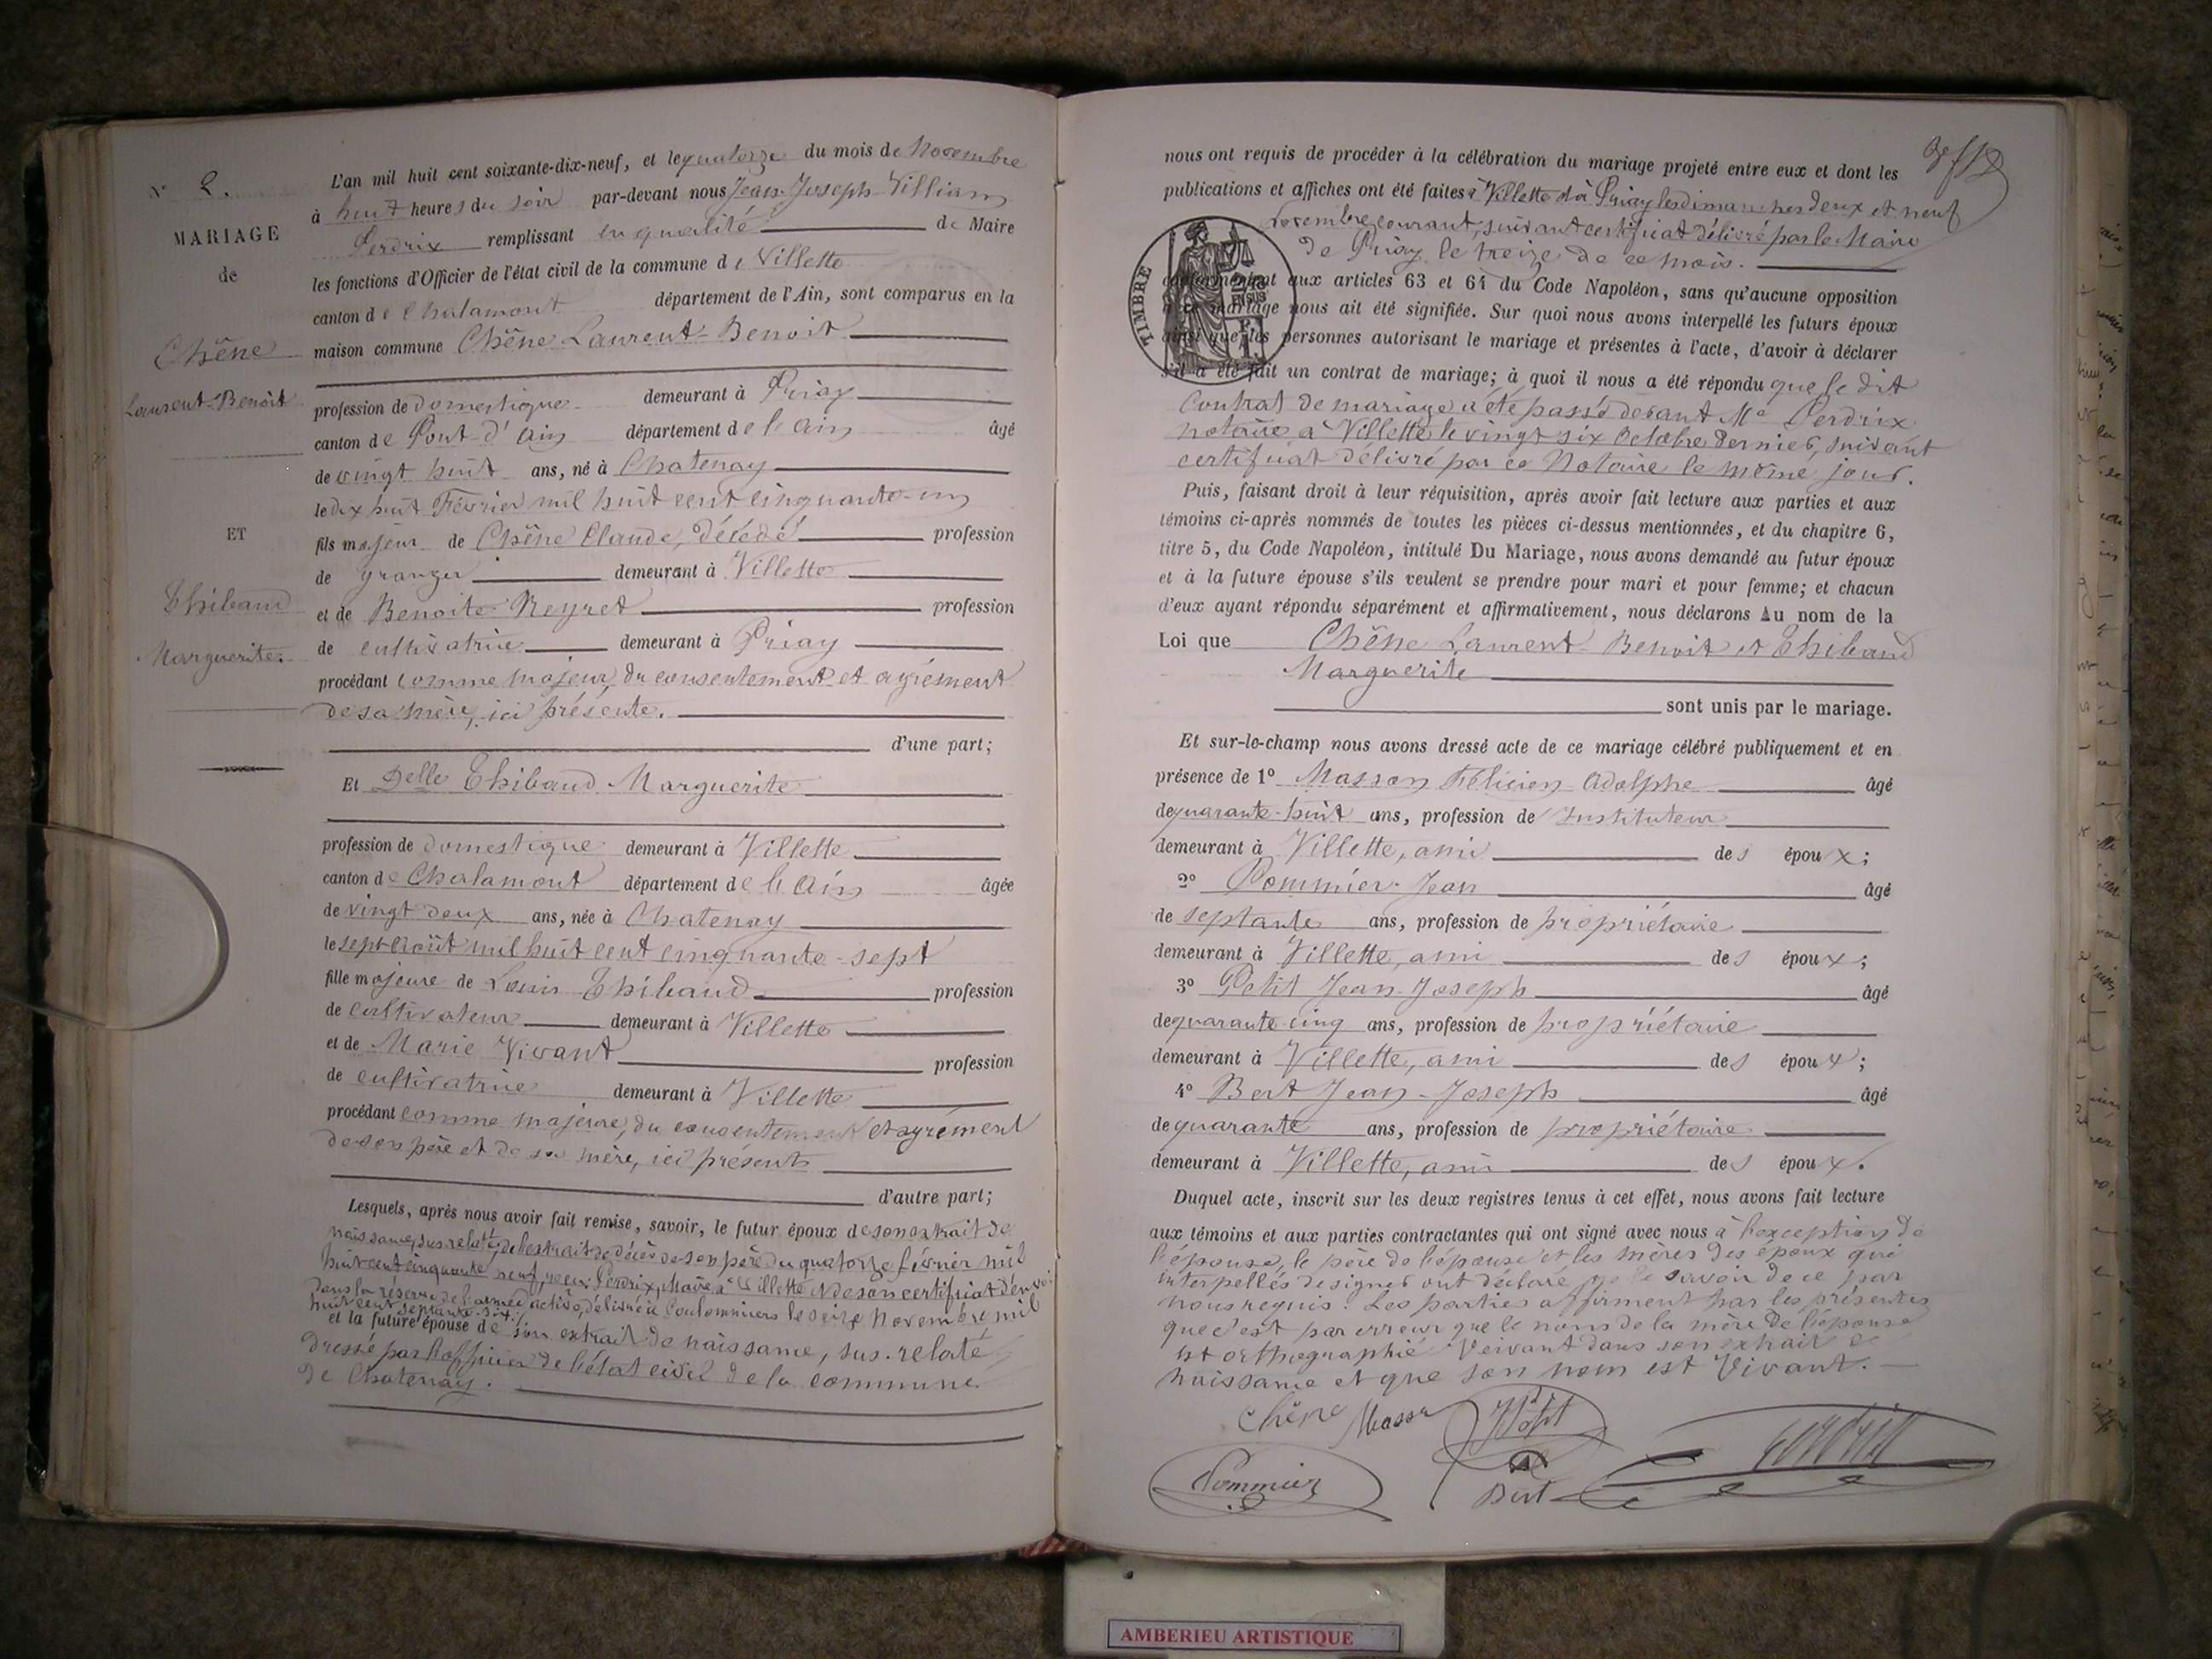 N° 2.
MARIAGE
de
Chêne
Laurent-Benoit
ET
Thibaud
Marguerite.
L'an mil huit cent soixante-dix-neuf, et le quatorze du mois de Novembre
à huit heures du soir par-devant nous Jean-Joseph-Villiam
Perdrix remplissant en qualité de Maire
les fonctions d'Officier de l'état civil de la commune de Villette
canton de Chalamont département de l'Ain, sont comparus en la
maison commune Chêne Laurent-Benoit
profession de domestique demeurant à Priay
canton de Pont-d'Ain département de l'Ain âgé
de vingt huit ans, né à Chatenay
le dix huit Février mil huit cent cinquante-un
fils majeur de Chêne Claude, décédé profession
de granger demeurant à Villette
et de Benoite Neyret profession
de cultivatrice demeurant à Priay
procédant comme majeur, du consentement et agrément
de sa mère, ici présente.
d'une part;
Et Delle Thibaud Marguerite
profession de domestique demeurant à Villette
canton de Chalamont département de l'Ain âgée
de vingt deux ans, née à Chatenay
le sept Août mil huit cent cinquante-sept
fille majeure de Louis Thibaud profession
de cultivateur demeurant à Villette
et de Marie Vivant profession
de cultivatrice demeurant à Villette
procédant comme majeure, du consentement et agrément
de son père et de sa mère, ici présents
d'autre part;
Lesquels, après nous avoir fait remise, savoir, le futur époux de son extrait de
naissance, sus relaté, de l'extrait de décès de son père du quatorze février mil
huit cent cinquante neuf, reçu Perdrix, Maire à Villette et de son certificat d'envoi
dans la réserve de l'armée active, délivré à Coulommiers le seize Novembre mil
huit cent septante-six.
et la future épouse de son extrait de naissance, sus-relaté
dressé par l'officier de l'état civil de la commune
de Chatenay.
nous ont requis de procéder à la célébration du mariage projeté entre eux et dont les
publications et affiches ont été faites à Villette et à Priay les dimanches deux et neuf
Novembre courant, suivant certificat délivré par le Maire
de Priay le treize de ce mois.
TIMBRE
conformément aux articles 63 et 64 du Code Napoléon, sans qu'aucune opposition
à ce mariage nous ait été signifiée. Sur quoi nous avons interpellé les futurs époux
ainsi que les personnes autorisant le mariage et présentes à l'acte, d'avoir à déclarer
s'il a été fait un contrat de mariage; à quoi il nous a été répondu que le dit
Contrat de mariage a été passé devant Me Perdrix
notaire à Villette le vingt six Octobre dernier, suivant
certificat délivré par ce Notaire le même jour.
Puis, faisant droit à leur réquisition, après avoir fait lecture aux parties et aux
témoins ci-après nommés de toutes les pièces ci-dessus mentionnées, et du chapitre 6,
titre 5, du Code Napoléon, intitulé Du Mariage, nous avons demandé au futur époux
et à la future épouse s'ils veulent se prendre pour mari et pour femme; et chacun
d'eux ayant répondu séparément et affirmativement, nous déclarons Au nom de la
Loi que Chêne Laurent-Benoit et Thibaud
Marguerite
sont unis par le mariage.
Et sur-le-champ nous avons dressé acte de ce mariage célébré publiquement et en
présence de 1° Masson Félicien Adolphe âgé
de quarante-huit ans, profession de Instituteur
demeurant à Villette, ami des époux;
2° Pommier Jean âgé
de septante ans, profession de propriétaire
demeurant à Villette, ami des époux;
3° Petit Jean-Joseph âgé
de quarante-cinq ans, profession de propriétaire
demeurant à Villette, ami des époux;
4° Bert Jean-Joseph âgé
de quarante ans, profession de propriétaire
demeurant à Villette, ami des époux.
Duquel acte, inscrit sur les deux registres tenus à cet effet, nous avons fait lecture
aux témoins et aux parties contractantes qui ont signé avec nous à l'exception de
l'épouse, le père de l'épouse et les mères des époux qui
interpellés de signer ont déclaré ne le savoir de ce par
nous requis. Les parties affirment par les présentes
que c'est par erreur que le nom de la mère de l'épouse
est orthographié Veivant dans son extrait de
naissance et que son nom est Vivant.
Chêne Masson Petit
Pommier Bert Perdrix
AMBERIEU ARTISTIQUE